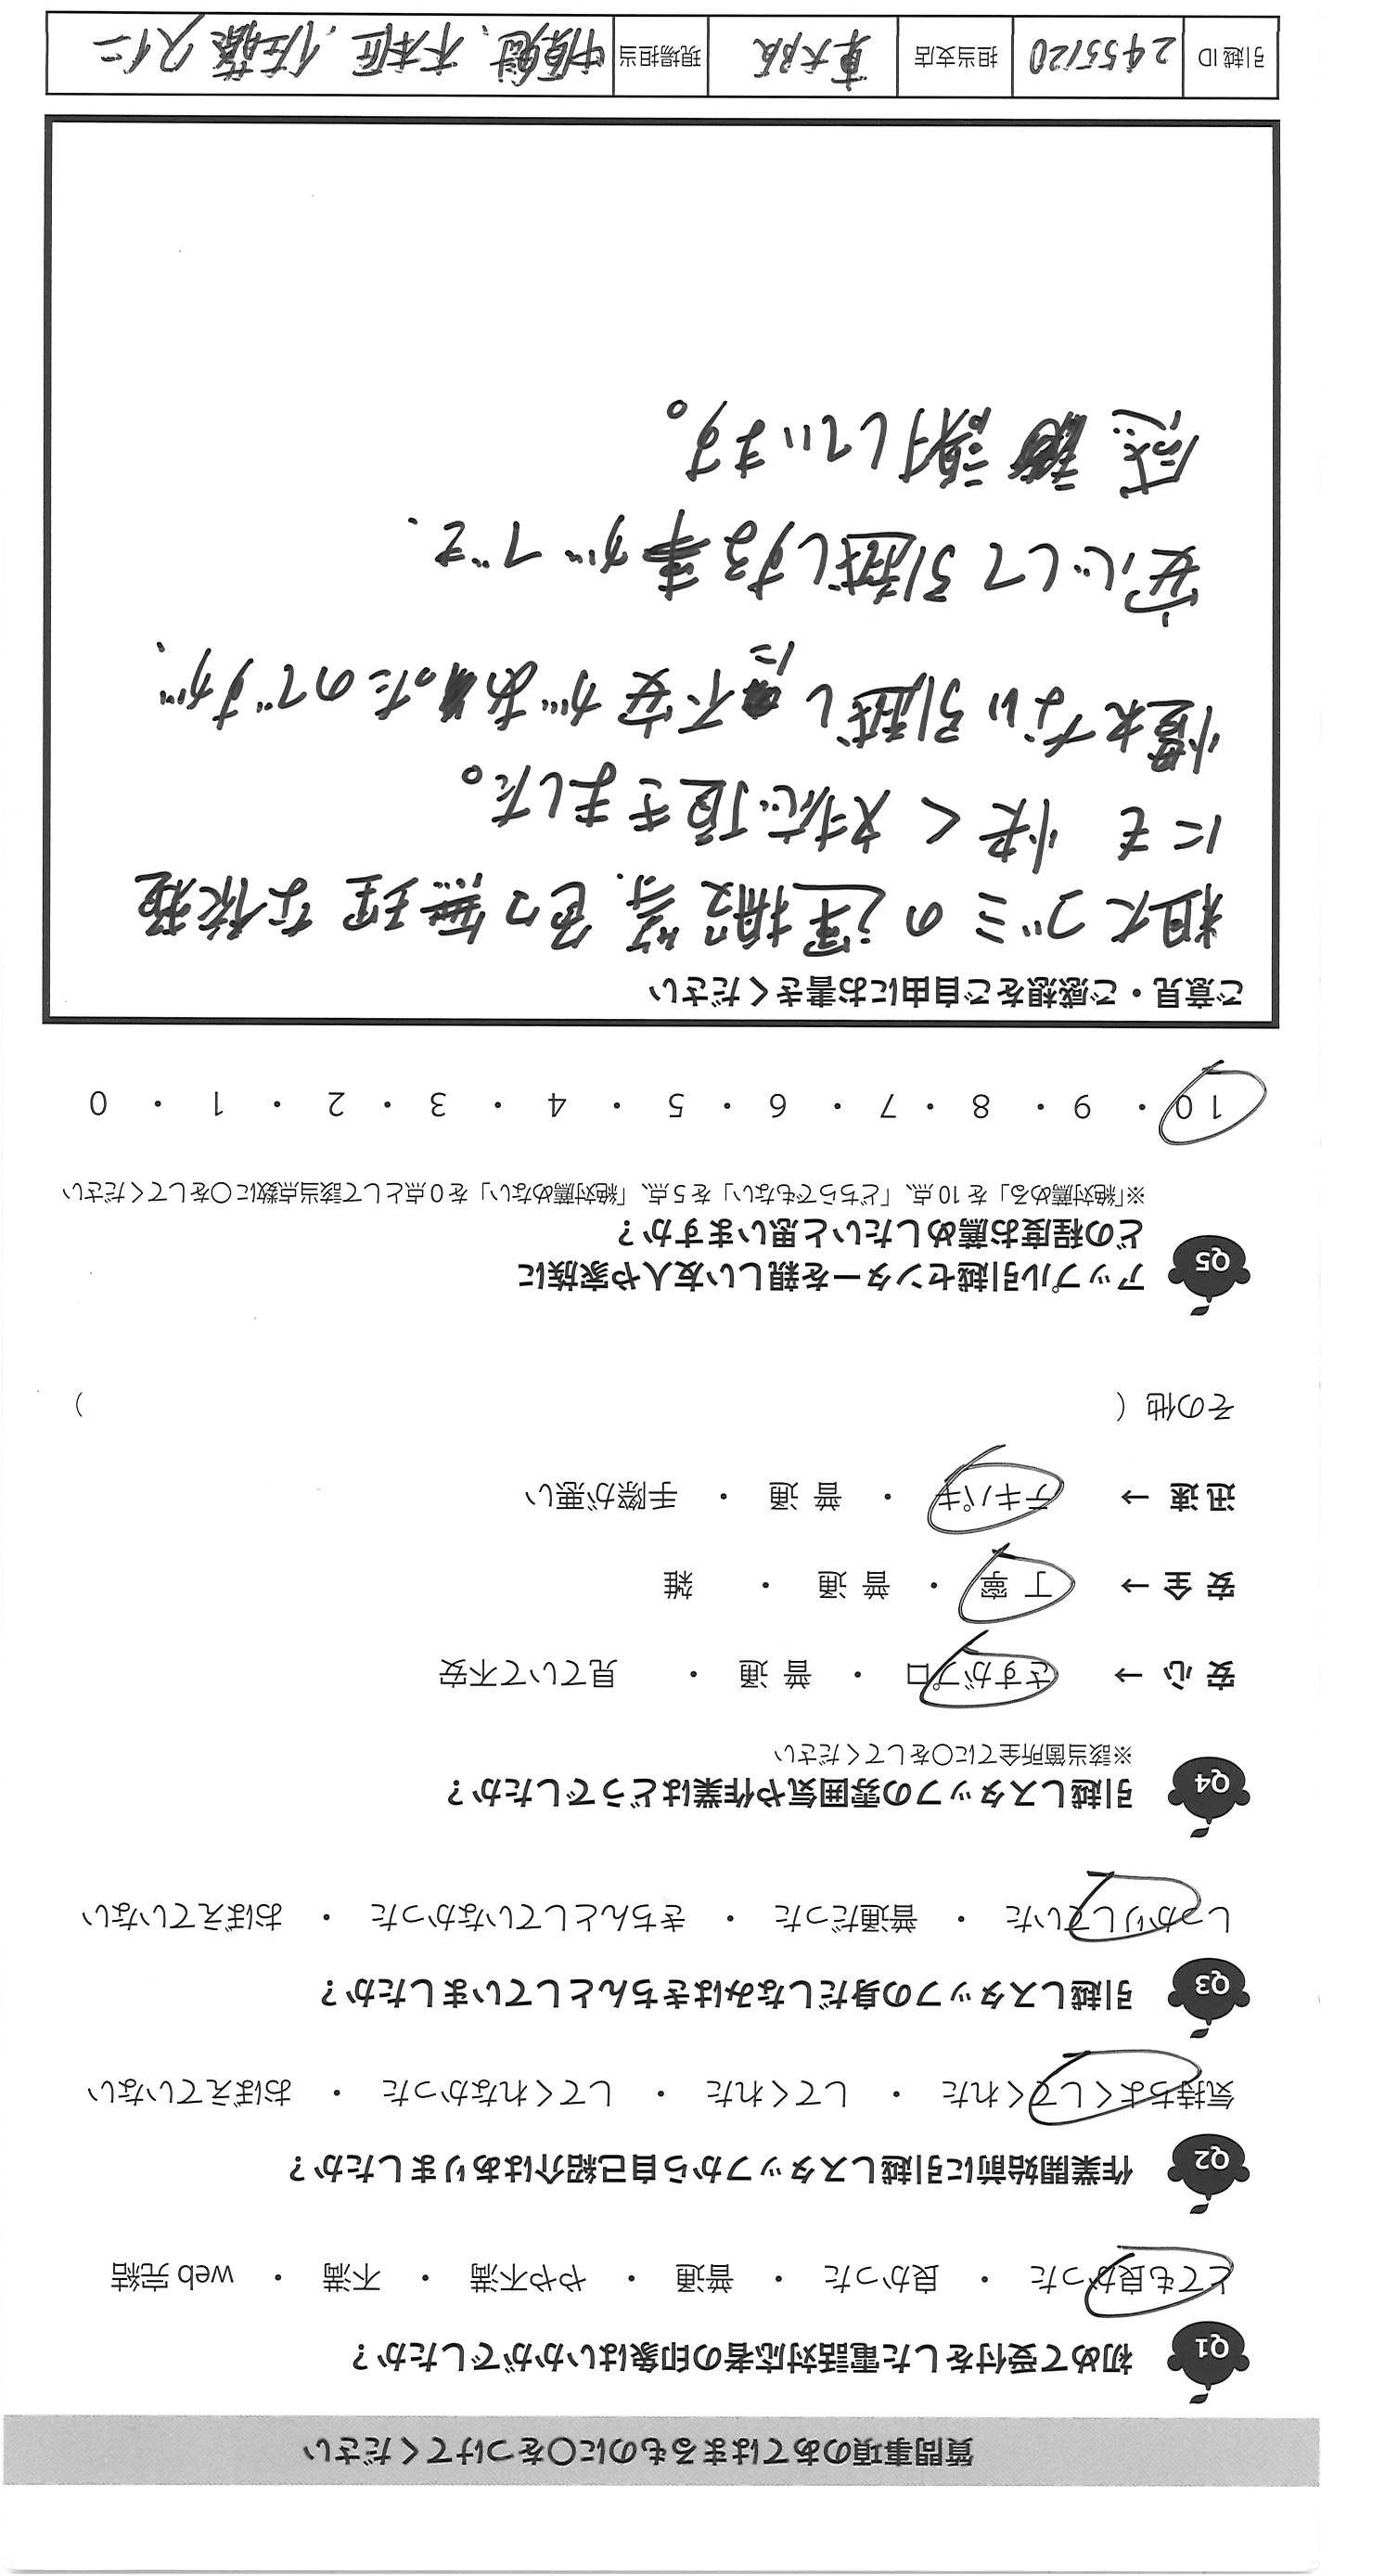 質問事項のあてはまるものに〇をつけてください
Q1 初めて受付をした電話対応者の印象はいかがでしたか？
とても良かった ・ 良かった ・ 普通 ・ やや不満 ・ 不満 ・ web 完結
Q2 作業開始前に引越しスタッフから自己紹介はありましたか？
気持ちよくしてくれた ・ してくれた ・ してくれなかった ・ おぼえていない
Q3 引越しスタッフの身だしなみはきちんとしていましたか？
しっかりしていた ・ 普通だった ・ きちんとしていなかった ・ おぼえていない
Q4 引越しスタッフの雰囲気や作業はどうでしたか？
※該当箇所全てに〇をしてください
安 心 → さすがプロ ・ 普 通 ・ 見ていて不安
安 全 → 丁 寧 ・ 普 通 ・ 雑
迅 速 → テキパキ ・ 普 通 ・ 手際が悪い
その他（ ）
Q5 アップル引越センターを親しい友人や家族に
どの程度お薦めしたいと思いますか？
※「絶対薦める」を 10 点、「どちらでもない」を 5 点、「絶対薦めない」を 0 点として該当点数に〇をしてください
10 ・ 9 ・ 8 ・ 7 ・ 6 ・ 5 ・ 4 ・ 3 ・ 2 ・ 1 ・ 0
ご意見・ご感想をご自由にお書きください
粗大ゴミの運搬等、色々無理な依頼
にも 快く対応頂きました。
慣れない引越しに不安があったのですが、
安心して引越しする事ができ、
感謝しています。
引越 ID 2455120 担当支店 東大阪 現場担当 中原 、木本匠、佐藤久仁